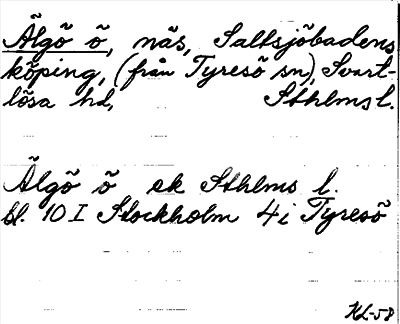 Älgö ö, näs, Saltsjöbadens
köping, (från Tyresö sn), Svart-
lösa hd, Sthlms l.
Älgö ö ek Sthlms l.
bl. 10 I Stockholm 4 i Tyresö
HL-58